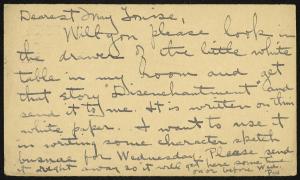 Dearest May Louise,
Will you please look in
the drawer of the little white
table in my room and get
that story "Disenchantment" and
send it to me. It is written on thin
white paper. I want to use it
in writing some character sketch
business for Wednesday. Please send
it right away so it will get here some time
on or before Wed.